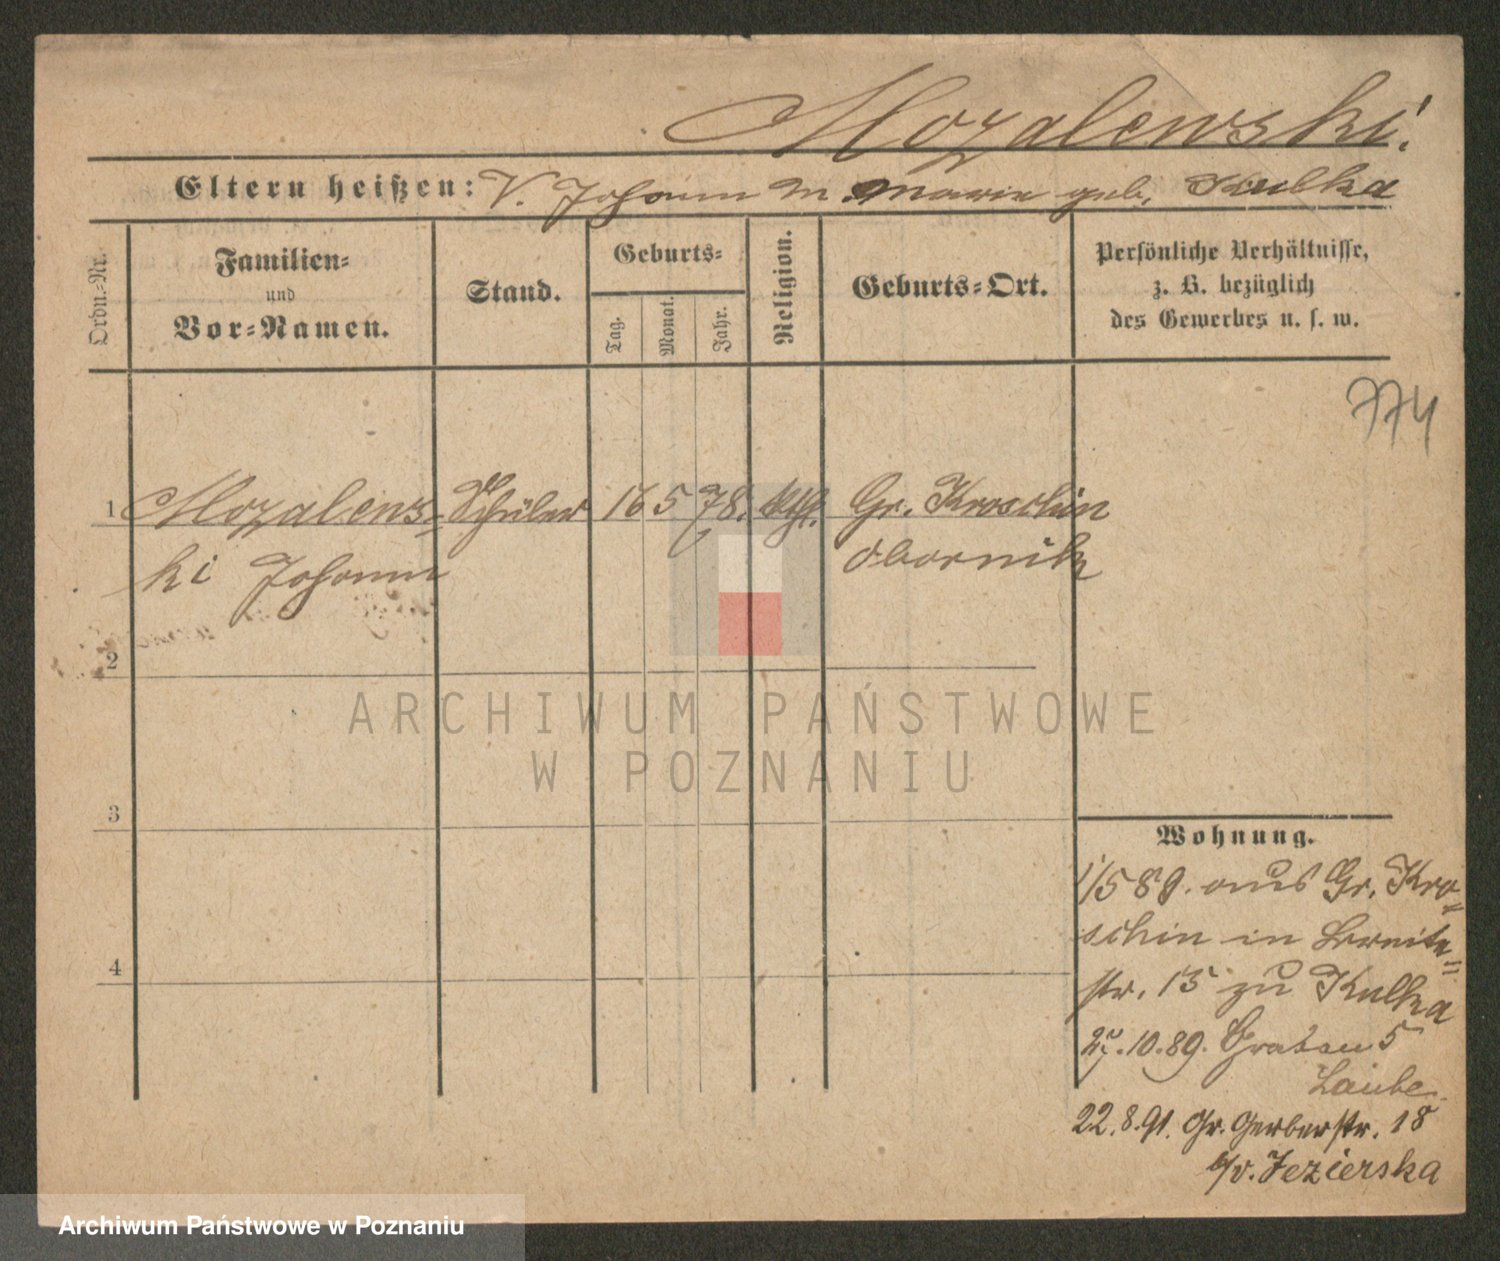 Mozalewski.
Eltern heißen: V. Johann M. Marie geb. Kulka
Ordn.-Nr.
Familien-
und
Vor-Namen.
Stand.
Geburts-
Tag.
Monat.
Jahr.
Religion.
Geburts-Ort.
Persönliche Verhältnisse,
z. B. bezüglich
des Gewerbes u. s. w.
774
1 Mozalews- Schüler 16 5 78. kth. Gr. Kroschin
ki Johann Obornik
2
3
4
Wohnung.
1/5 89. aus Gr. Kro-
schin in Breite-
str. 15 zu Kulka
27.10.89. Graben 5
Laube
22.8.91. Gr. Gerberstr. 18
b/v. Jezierska
ARCHIWUM PAŃSTWOWE
W POZNANIU
Archiwum Państwowe w Poznaniu